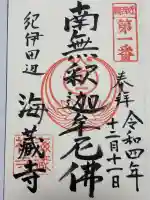 第一番
奉拝
令和四年
十二月十一日
南無釈迦牟尼佛
紀伊田辺
海蔵寺